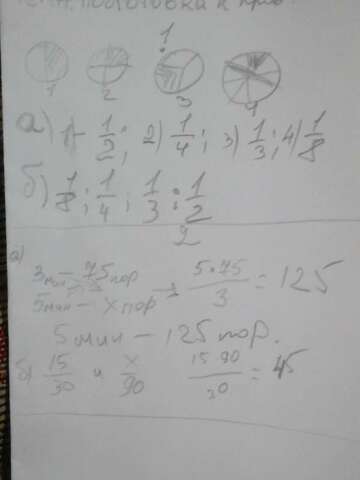 подготовка к
1
1 2 3 4
а) 1) 1/2; 2) 1/4; 3) 1/3; 4) 1/8
б) 1/8; 1/4; 1/3; 1/2
2
а)
3 мин – 75 пор
5 мин – х пор → 5·75/3 = 125
5 мин – 125 пор.
б) 15/30 и х/90 15·90/30 = 45